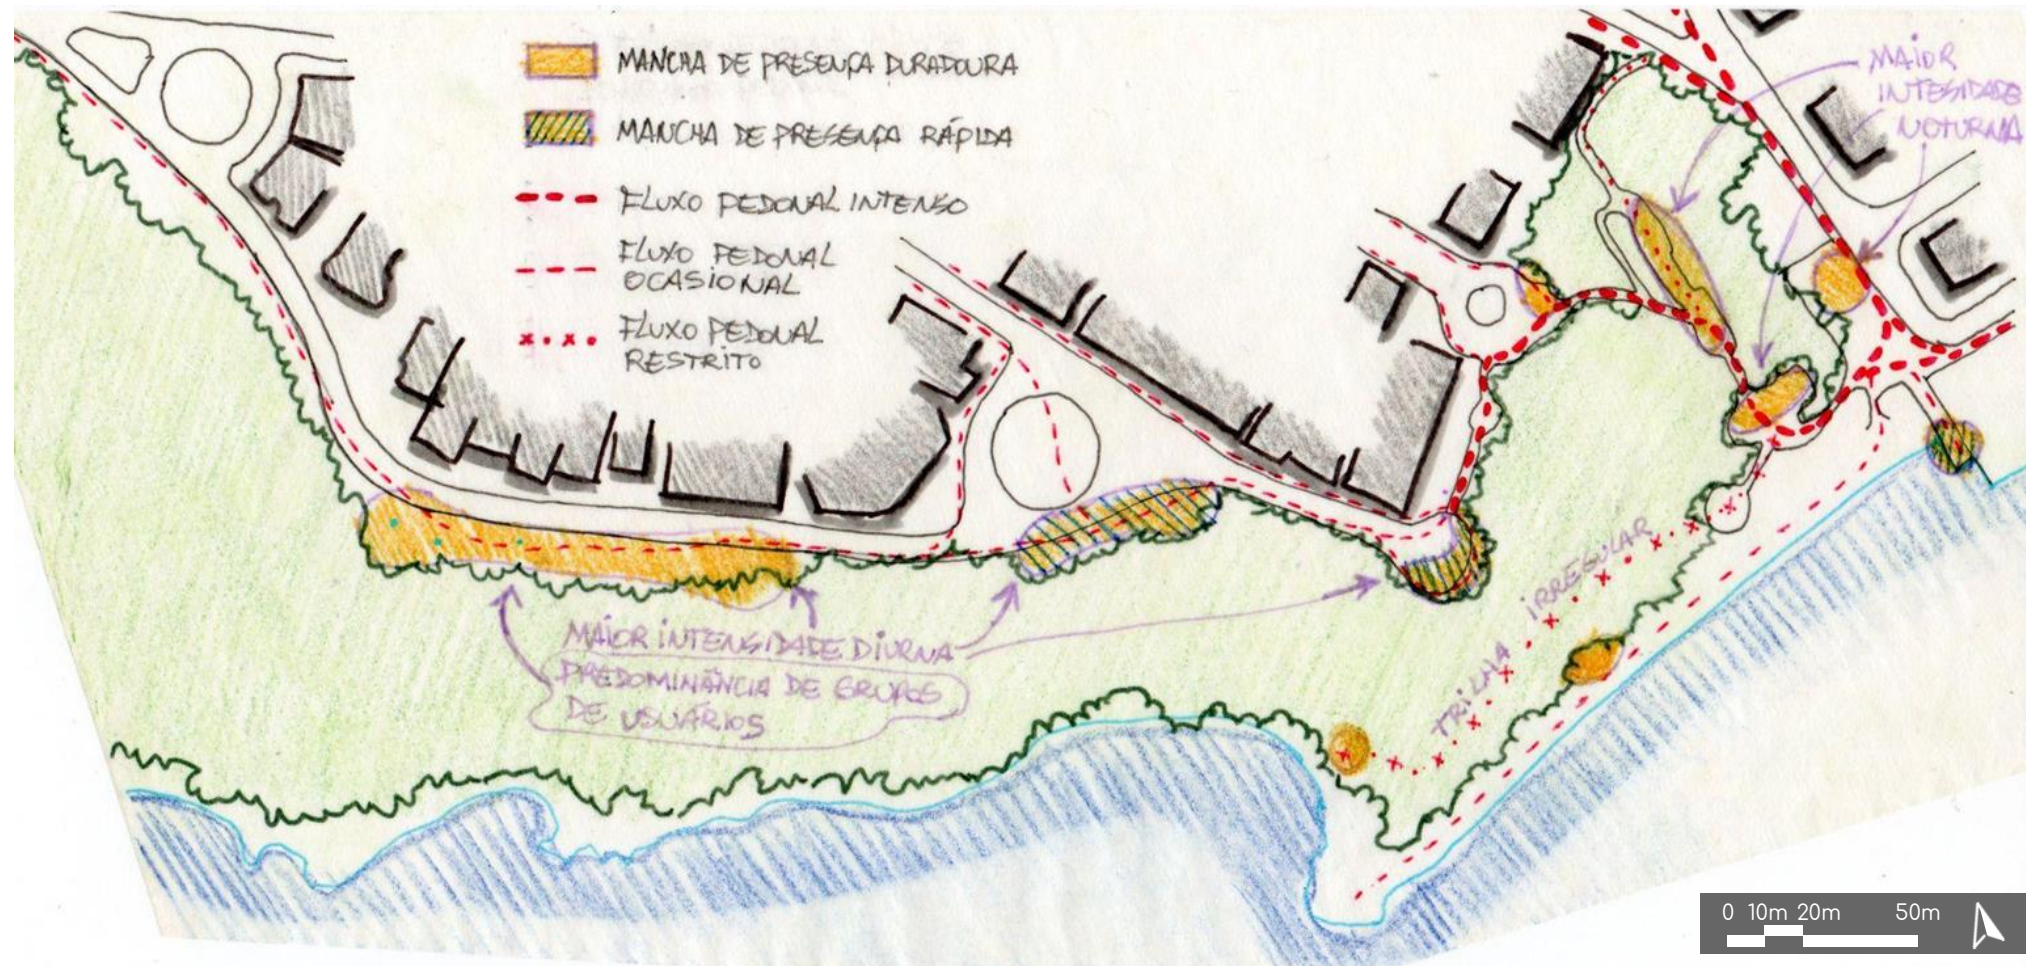 MANCHA DE PRESENÇA DURADOURA
MANCHA DE PRESENÇA RÁPIDA
FLUXO PEDONAL INTENSO
FLUXO PEDONAL
OCASIONAL
FLUXO PEDONAL
RESTRITO
MAIOR
INTESIDADE
NOTURNA
MAIOR INTENSIDADE DIURNA
PREDOMINÂNCIA DE GRUPOS
DE USUÁRIOS
TRILHA IRREGULAR
0 10m 20m 50m